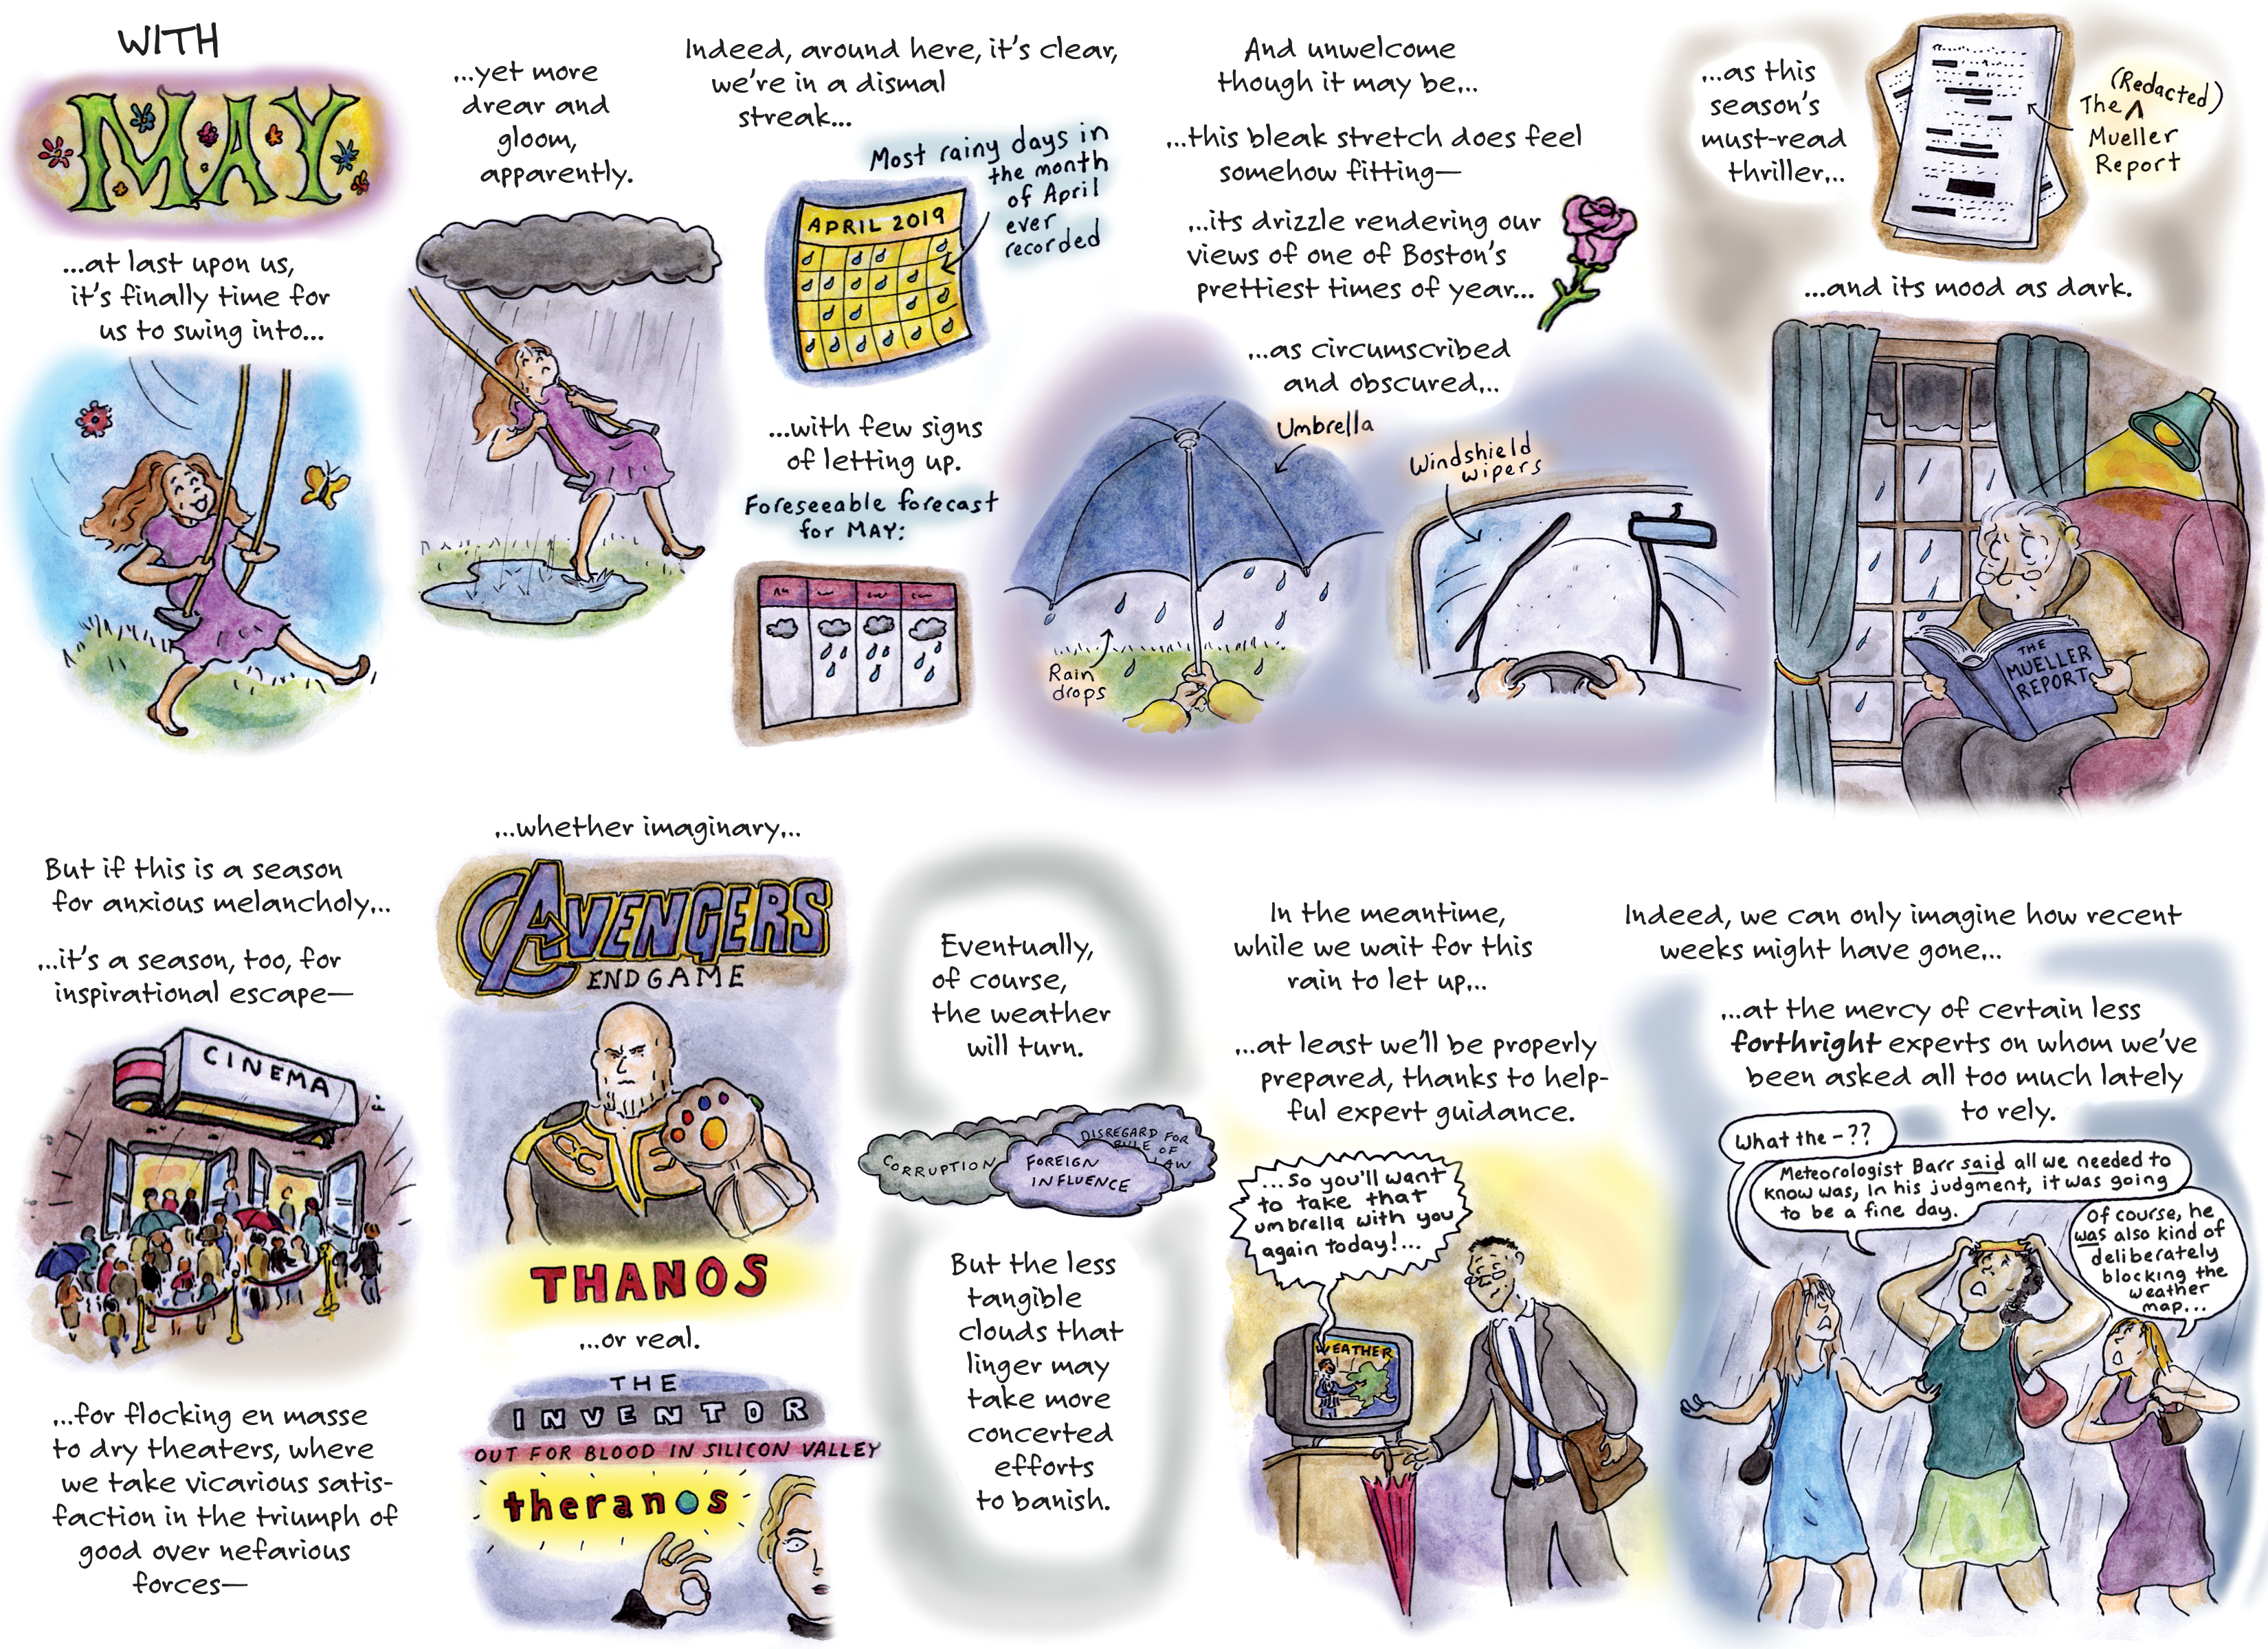 WITH
MAY
...at last upon us,
it's finally time for
us to swing into...
...yet more
drear and
gloom,
apparently.
Indeed, around here, it's clear,
we're in a dismal
streak...
Most rainy days in
the month
of April
ever
recorded
APRIL 2019
...with few signs
of letting up.
Foreseeable forecast
for MAY:
And unwelcome
though it may be...
...this bleak stretch does feel
somehow fitting—
...its drizzle rendering our
views of one of Boston's
prettiest times of year...
...as circumscribed
and obscured...
Umbrella
Rain
drops
Windshield
wipers
...as this
season's
must-read
thriller...
(Redacted)
The
Mueller
Report
...and its mood as dark.
THE
MUELLER
REPORT
But if this is a season
for anxious melancholy...
...it's a season, too, for
inspirational escape—
CINEMA
...for flocking en masse
to dry theaters, where
we take vicarious satis-
faction in the triumph of
good over nefarious
forces—
...whether imaginary...
AVENGERS
ENDGAME
THANOS
...or real.
THE
INVENTOR
OUT FOR BLOOD IN SILICON VALLEY
theranos
Eventually,
of course,
the weather
will turn.
CORRUPTION
FOREIGN
INFLUENCE
DISREGARD FOR
RULE OF
LAW
But the less
tangible
clouds that
linger may
take more
concerted
efforts
to banish.
In the meantime,
while we wait for this
rain to let up...
...at least we'll be properly
prepared, thanks to help-
ful expert guidance.
...So you'll want
to take that
umbrella with you
again today!...
WEATHER
Indeed, we can only imagine how recent
weeks might have gone...
...at the mercy of certain less
forthright experts on whom we've
been asked all too much lately
to rely.
What the-??
Meteorologist Barr said all we needed to
know was, in his judgment, it was going
to be a fine day.
Of course, he
was also kind of
deliberately
blocking the
weather
map...